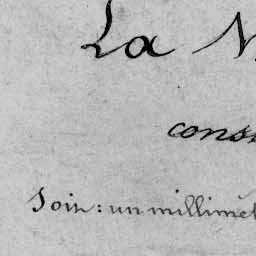 La
cons
Soit : un millimèt